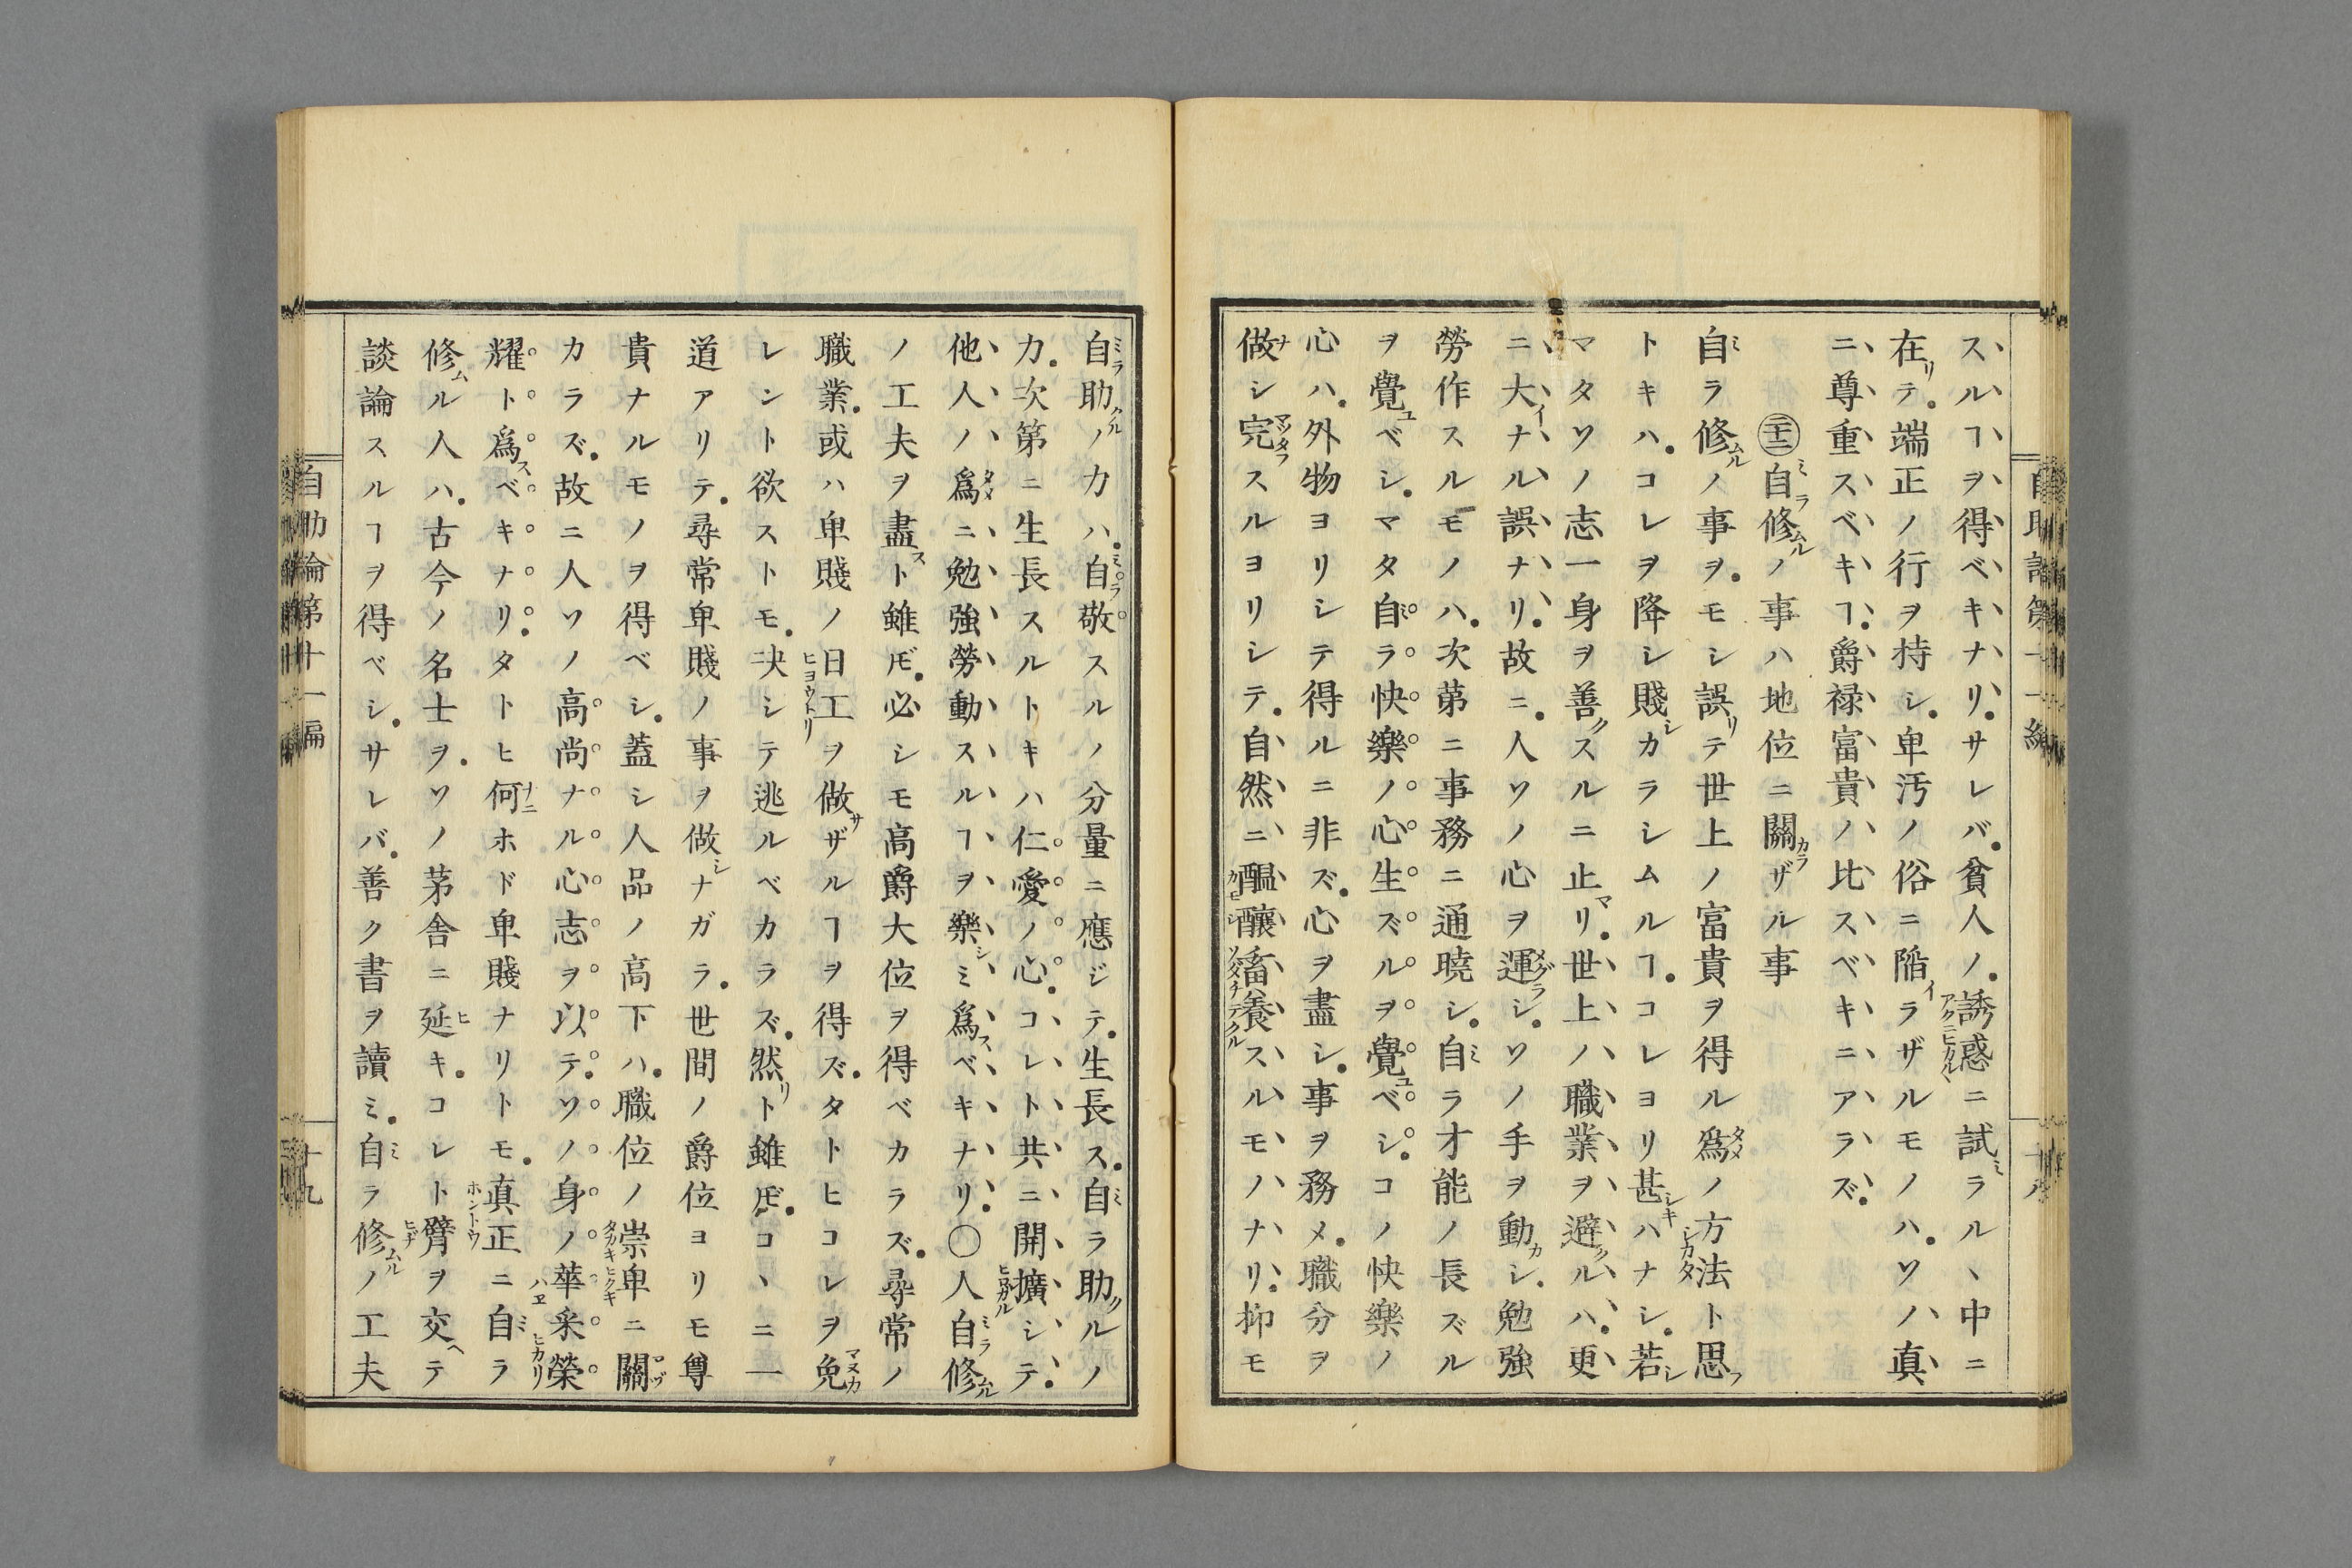 自助論第十一編
スルヿヲ得ベキナリ。サレバ。貧人ノ。誘惑ニ試ミラルヽ中ニ
在リテ。端正ノ行ヲ持シ。卑汚ノ俗ニ陥イラザルモノハ。ソノ真
ニ尊重スベキヿ。爵禄富貴ノ比スベキニアラズ。
二十二 自ミラ修ムルノ事ハ地位ニ關カラザル事
自ミラ修ムルノ事ヲ。モシ誤リテ世上ノ富貴ヲ得ル爲ノ方法ト思フ
トキハ。コレヲ降シ賤シカラシムルヿ。コレヨリ甚シキハナシ。若シ
マタソノ志一身ヲ善クスルニ止マリ。世上ノ職業ヲ避クルハ。更
ニ大イナル誤ナリ。故ニ。人ソノ心ヲ運メグラシ。ソノ手ヲ動カシ。勉強
勞作スルモノハ。次第ニ事務ニ通曉シ。自ミラ才能ノ長ズル
ヲ覺ユベシ。マタ自ミラ快樂ノ心生ズルヲ覺ユベシ。コノ快樂ノ
心ハ。外物ヨリシテ得ルニ非ズ。心ヲ盡シ。事ヲ務メ。職分ヲ
做ナシ完マツタフスルヨリシテ。自然ニ醞釀畜養スルモノナリ。抑モ
十八
自ミラ助クルノ力ハ。自ミラ敬スルノ分量ニ應ジテ。生長ス。自ミラ助クルノ
力。次第ニ生長スルトキハ仁愛ノ心。コレト共ニ開擴シテ。
他人ノ爲ニ勉強勞動スルヿヲ樂シミ爲スベキナリ。〇人自ミラ修ムル
ノ工夫ヲ盡スト雖ドモ。必シモ高爵大位ヲ得ベカラズ。尋常ノ
職業。或ハ卑賤ノ日工ヲ做サザルヿヲ得ズ。タトヒコレヲ免マヌカ
レント欲ストモ。決シテ逃ルベカラズ。然リト雖ドモ。コヽニ一
道アリテ。尋常卑賤ノ事ヲ做シナガラ。世間ノ爵位ヨリモ尊
貴ナルモノヲ得ベシ。蓋シ人品ノ高下ハ。職位ノ崇卑ニ關
カラズ。故ニ人ソノ高尚ナル心志ヲ以テ。ソノ身ノ華采榮
耀ト爲スベキナリ。タトヒ何ホド卑賤ナリトモ。真正ニ自ミラ
修ムル人ハ。古今ノ名士ヲ。ソノ茅舎ニ延ヒキ。コレト臂ヲ交ヘテ
談論スルヿヲ得ベシ。サレバ。善ク書ヲ讀ミ。自ミラ修ムルノ工夫
自助論第十一編
十九